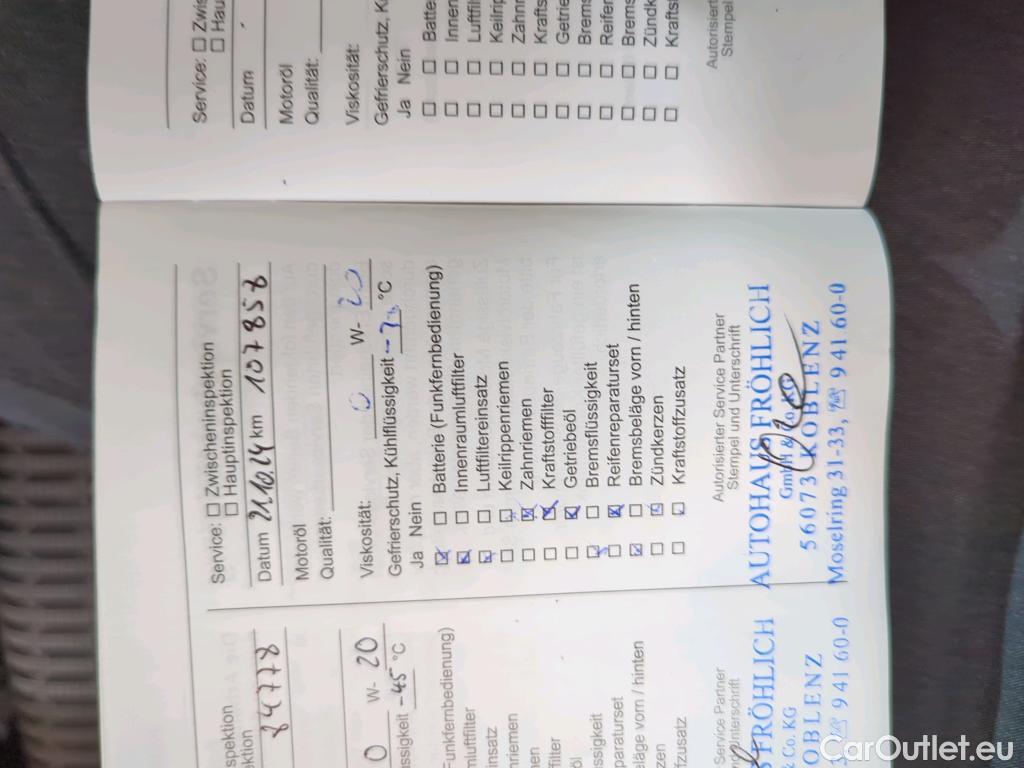 Service: □ Zwi
□ Hau
Datum
Motoröl
Qualität:
Viskosität:
Gefrierschutz, K
Ja Nein
□ □ Batte
□ □ Innen
□ □ Luftfilt
□ □ Keilrip
□ □ Zahnr
□ □ Krafts
□ □ Getrie
□ □ Brems
□ □ Reifen
□ □ Brems
□ □ Zündk
□ □ Krafts
Autorisierter
Stempel
Service: □ Zwischeninspektion
□ Hauptinspektion
Datum 21.10.24 km 107858
Motoröl
Qualität:
Viskosität: 0 W- 20
Gefrierschutz, Kühlflüssigkeit °C
Ja Nein
☒ □ Batterie (Funkfernbedienung)
☒ □ Innenraumluftfilter
☒ □ Luftfiltereinsatz
□ ☒ Keilrippenriemen
□ ☒ Zahnriemen
□ ☒ Kraftstofffilter
□ ☒ Getriebeöl
☒ □ Bremsflüssigkeit
□ ☒ Reifenreparaturset
☒ □ Bremsbeläge vorn / hinten
□ ☒ Zündkerzen
□ ☒ Kraftstoffzusatz
Autorisierter Service Partner
Stempel und Unterschrift
AUTOHAUS FRÖHLICH
GmbH & Co. KG
56073 KOBLENZ
Moselring 31-33, ☏ 9 41 60-0
spektion
ektion
84778
0 W- 20
üssigkeit -45 °C
Funkfernbedienung)
mluftfilter
insatz
nriemen
en
filter
öl
sigkeit
paraturset
eläge vorn / hinten
zen
fzusatz
Service Partner
nterschrift
FRÖHLICH
& Co. KG
OBLENZ
☏ 9 41 60-0
CarOutlet.eu